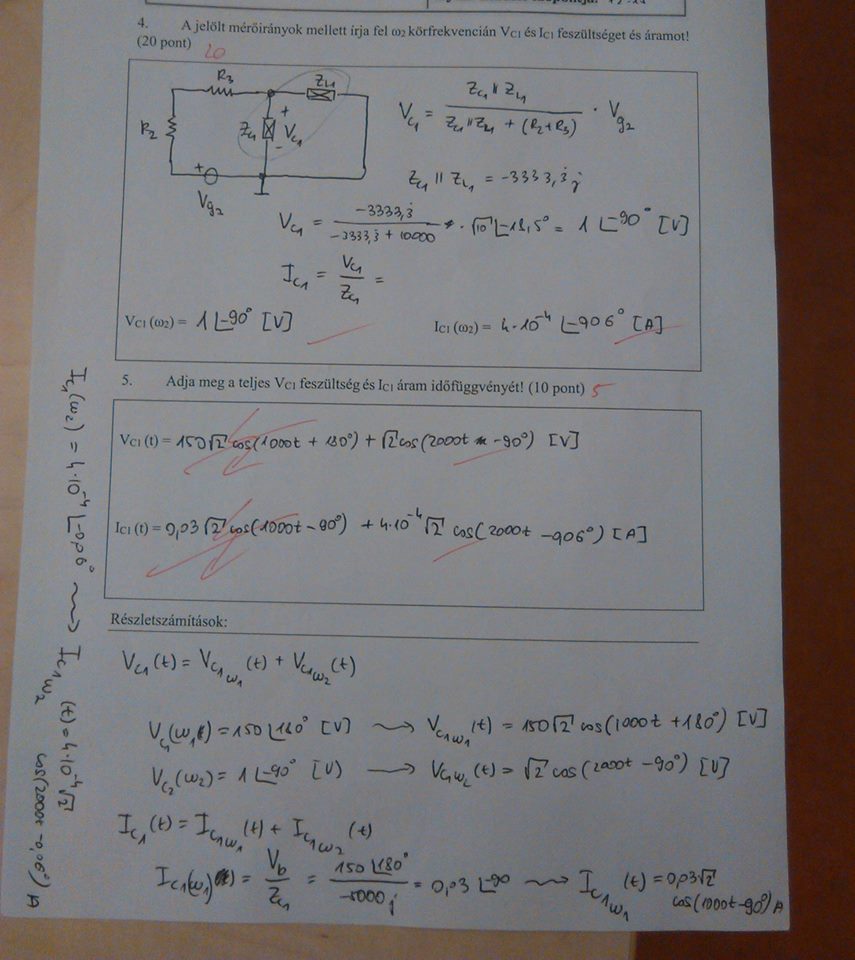 4. A jelölt mérőirányok mellett írja fel ω2 körfrekvencián VC1 és IC1 feszültséget és áramot!
(20 pont) 20
R3
ZL1
R2
ZC1
+
VC1
-
+
Vg2
VC1 = ZC1 || ZL1 / ZC1 || ZL1 + (R2+R3) · Vg2
ZC1 || ZL1 = -3333,3̇ j
VC1 = -3333,3̇ / -3333,3̇ + 10000 · √10 ∠-18,5° = 1 ∠-90° [V]
IC1 = VC1 / ZC1 =
VC1 (ω2) = 1 ∠-90° [V]
IC1 (ω2) = 4·10⁻⁴ ∠-906° [A]
5. Adja meg a teljes VC1 feszültség és IC1 áram időfüggvényét! (10 pont) 5
VC1 (t) = 150√2 cos(1000t + 180°) + √2 cos(2000t - 90°) [V]
IC1 (t) = 0,03√2 cos(1000t - 90°) + 4·10⁻⁴ √2 cos(2000t - 906°) [A]
Részletszámítások:
VC1 (t) = VC1ω1 (t) + VC1ω2 (t)
VC1 (ω1) = 150 ∠180° [V] ⟶ VC1ω1 (t) = 150√2 cos(1000t + 180°) [V]
VC2 (ω2) = 1 ∠-90° [V] ⟶ VC1ω2 (t) = √2 cos(2000t - 90°) [V]
IC1 (t) = IC1ω1 (t) + IC1ω2 (t)
IC1(ω1) = Vb / ZC1 = 150 ∠180° / -5000 j = 0,03 ∠-90 ⟶ IC1ω1 (t) = 0,03√2
cos(1000t - 90°) A
IC1 (ω2) = 4·10⁻⁴ ∠-0,06° ⟶ IC1ω2 (t) = 4·10⁻⁴ √2
cos(2000t - 0,06°) A